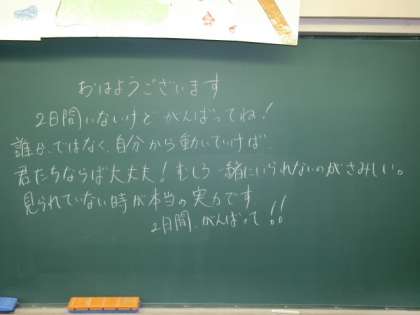 おはようございます
2日間いないけど がんばってね!
誰か、ではなく、自分から動いていけば
君たちならば大丈夫!むしろ一緒にいられないのがさみしい。
見られていない時が本当の実力です
2日間、がんばって!!